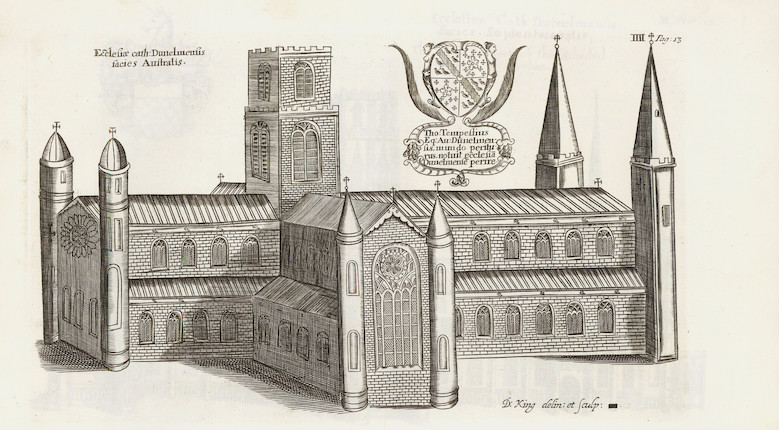 Ecclesiæ cath: Dunelmensis
facies Australis.
IIII Pag: 13
Tho Tempestius
Eq: Au: Dunelmen-
sis. mundo peritu
rus. noluit ecclesiā
Dunelmensē perire
D: King delin: et sculp: